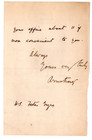 your office about 11 if
more convenient to you
Always
Yours very truly
Armstrong